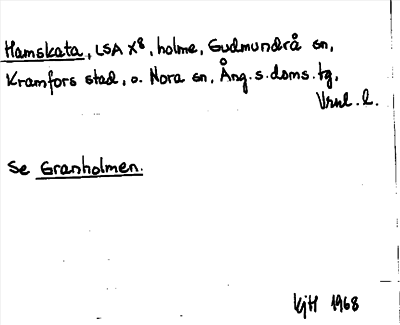 Hamskata, LSA X⁸, holme, Gudmundrå sn,
Kramfors stad, o. Nora sn, Ång. s. doms. tg,
Vrnl. l.
Se Granholmen.
KjH 1968